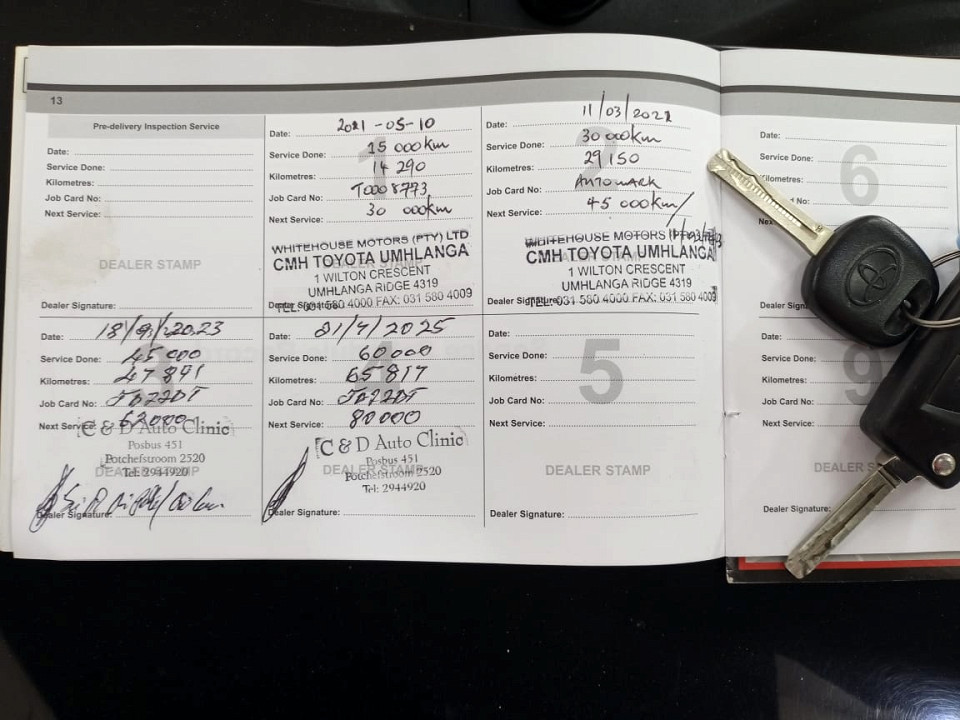 13
Pre-delivery Inspection Service
Date:
Service Done:
Kilometres:
Job Card No:
Next Service:
DEALER STAMP
Dealer Signature:
1
Date: 2021-05-10
Service Done: 15 000km
Kilometres: 14 290
Job Card No: T0008773
Next Service: 30 000km
WHITEHOUSE MOTORS (PTY) LTD
CMH TOYOTA UMHLANGA
1 WILTON CRESCENT
UMHLANGA RIDGE 4319
TEL: 031 580 4000 FAX: 031 580 4009
Dealer Signature:
2
Date: 11/03/2022
Service Done: 30 000km
Kilometres: 29150
Job Card No: AUTOMARK
Next Service: 45 000km/
WHITEHOUSE MOTORS
CMH TOYOTA UMHLANGA
1 WILTON CRESCENT
UMHLANGA RIDGE 4319
TEL: 031 580 4000 FAX: 031 580 4009
Dealer Signature:
6
Date:
Service Done:
Kilometres:
No:
Date: 18/9/2023
Service Done: 45 000
Kilometres: 47891
Job Card No:
Next Service: 62000
C & D Auto Clinic
Posbus 451
Potchefstroom 2520
Tel: 2944920
DEALER STAMP
Dealer Signature:
4
Date: 21/7/2025
Service Done: 60000
Kilometres: 65817
Job Card No:
Next Service: 80000
C & D Auto Clinic
Posbus 451
Potchefstroom 2520
Tel: 2944920
DEALER STAMP
Dealer Signature:
5
Date:
Service Done:
Kilometres:
Job Card No:
Next Service:
DEALER STAMP
Dealer Signature:
9
Date:
Service Done:
Kilometres:
Job Card No:
Next Service:
DEALER S
Dealer Signature: